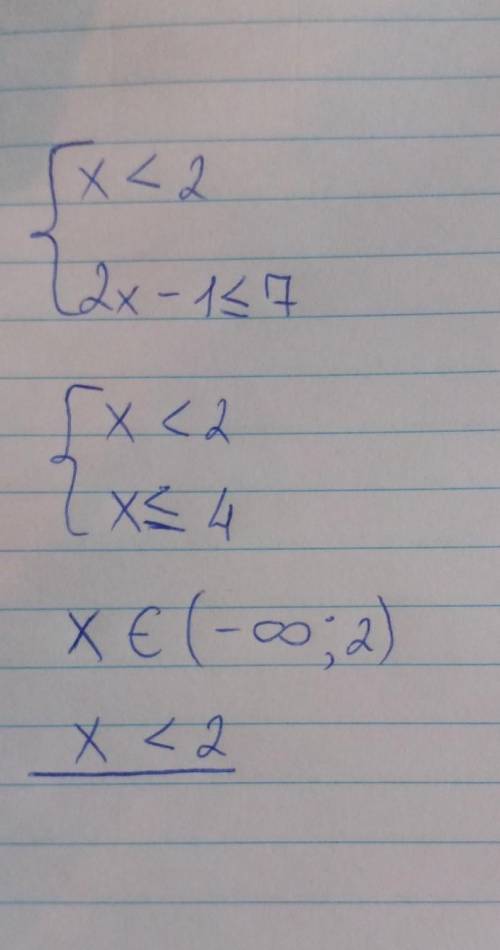 x < 2
2x - 1 ≤ 7
x < 2
x ≤ 4
x ∈ (-∞; 2)
x < 2